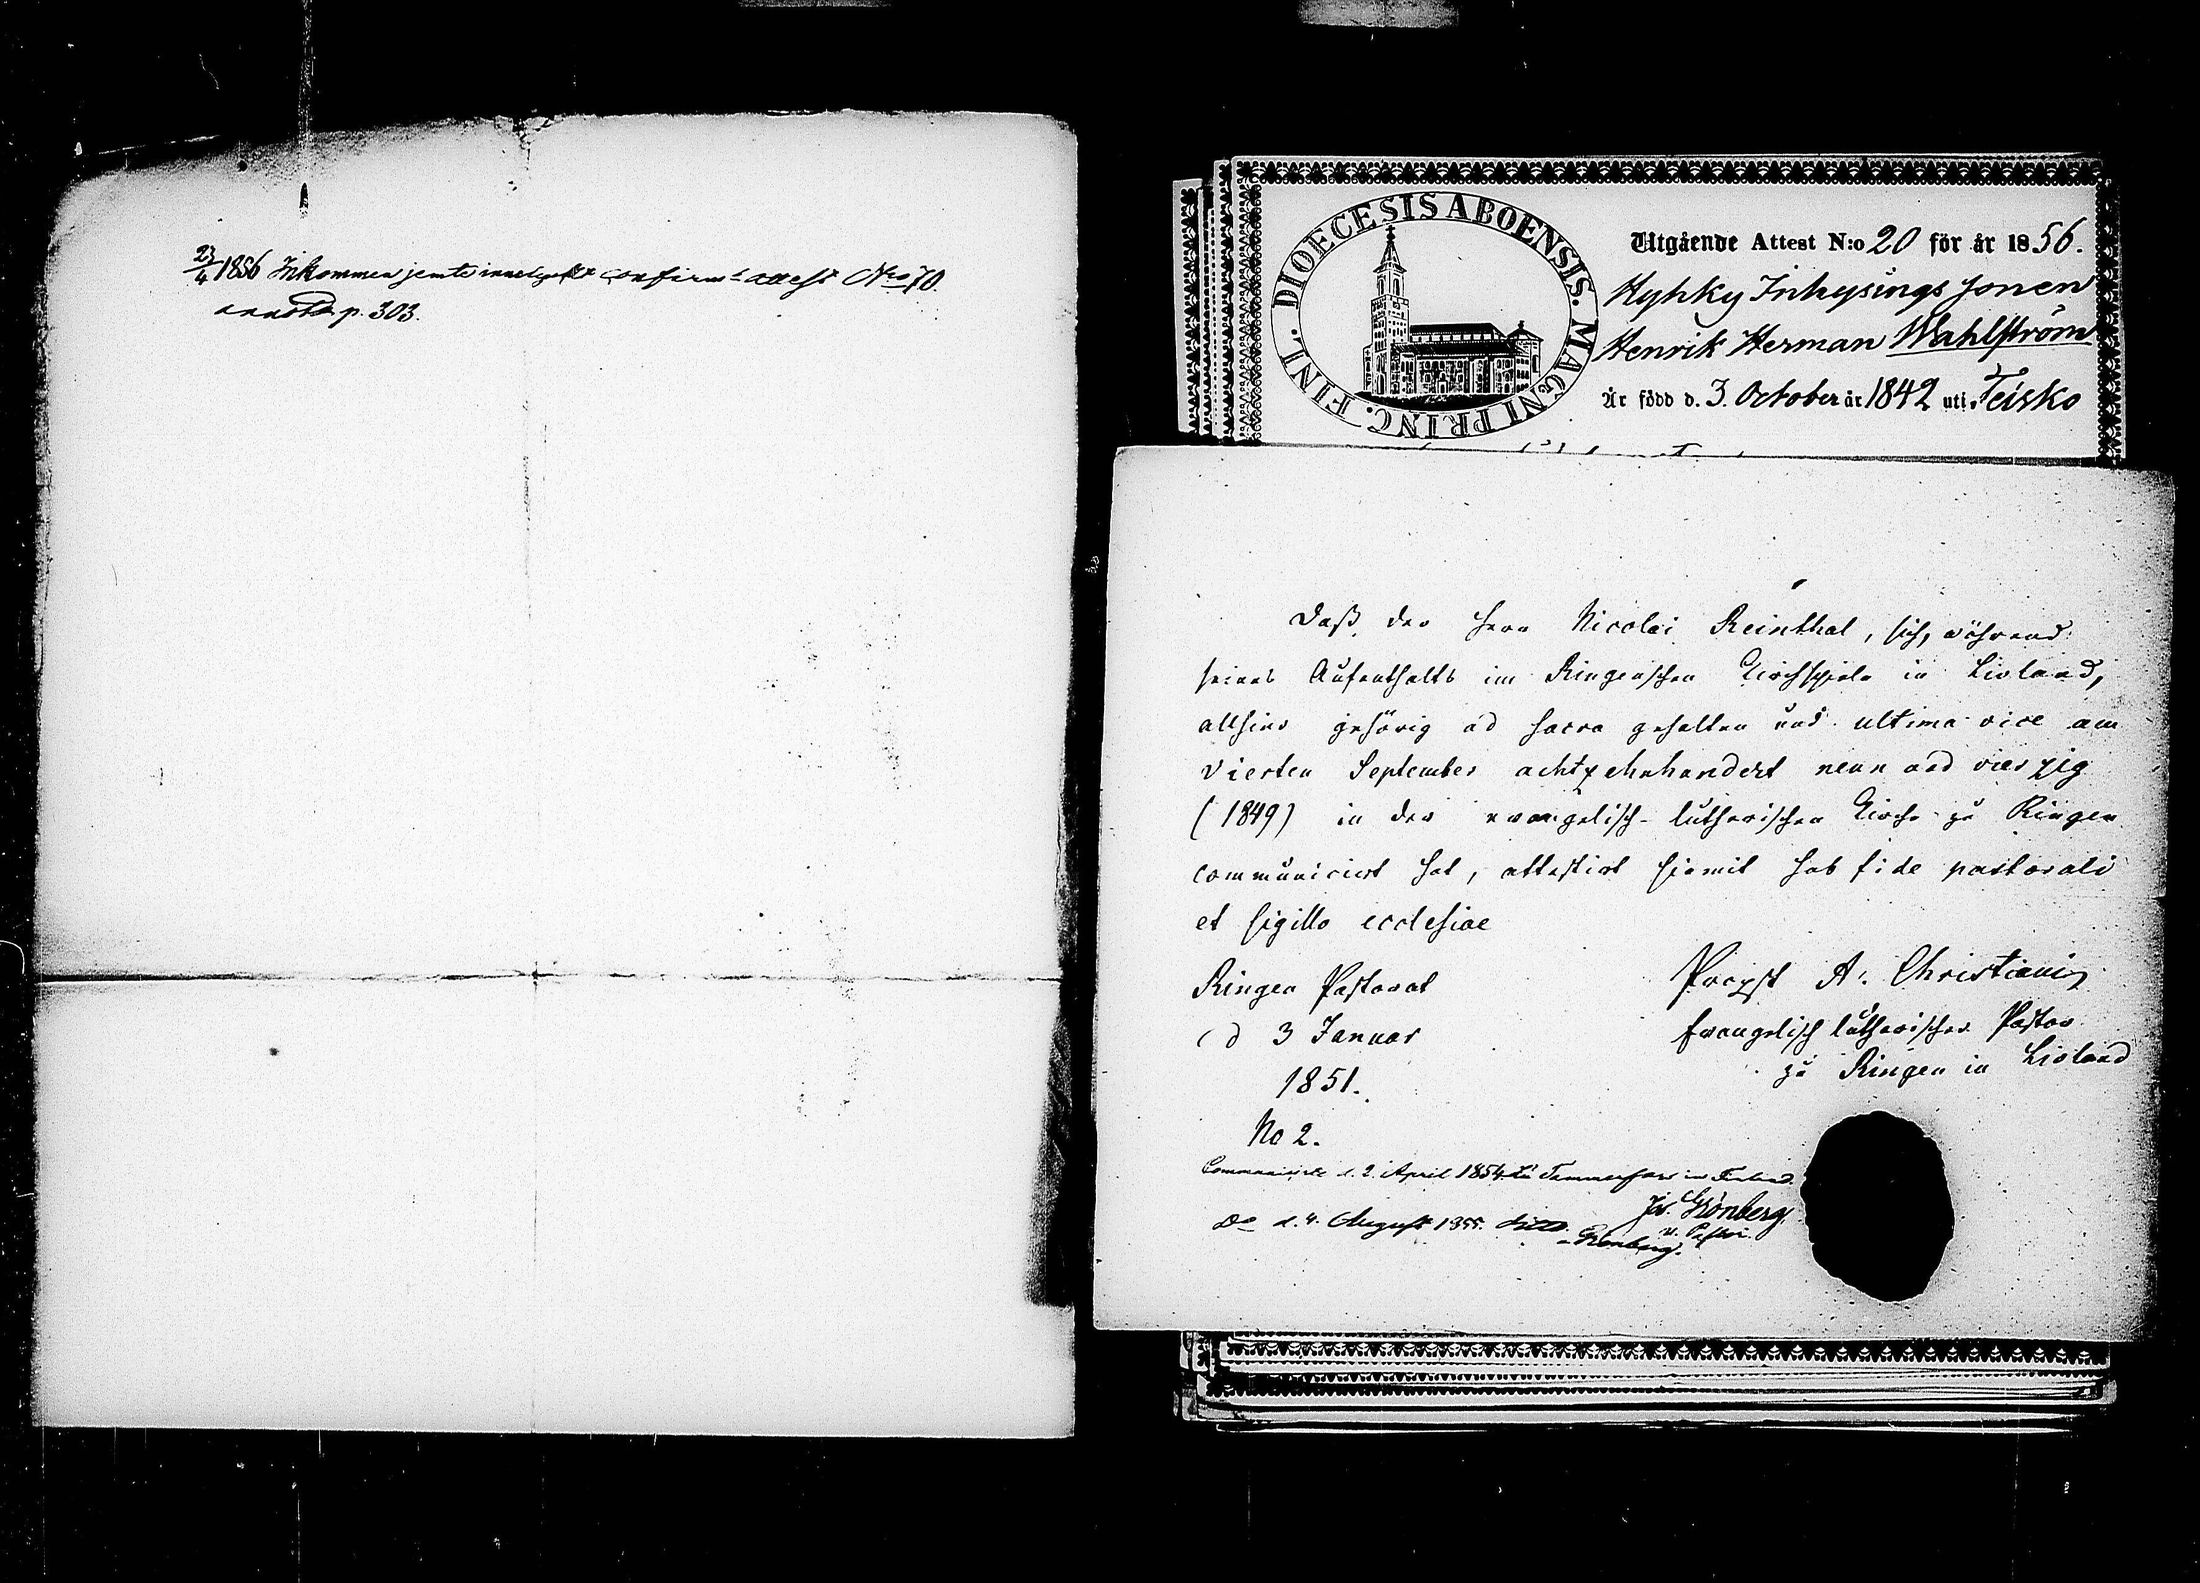 23/4 1856 Inkommen jemte innelyckt confirms attest No 70.
p. 303.
DIOECESIS ABOENSIS. MAGNI PRINC. FINL.
Utgående Attest N:o 20 för år 1856.
Hyhky Inhysings sonen
Henrik Herman Wahlström
Är född d. 3. October år 1842 uti Teisko
Daß der Herr Nicolai Reinthal, sich, während
seines Aufenthalts im Ringenschen Kirchspiele in Livland,
allhier gehörig ad sacra gehalten und ultima vice am
vierten September achtzehnhundert neun und vierzig
(1849) in der evangelisch-lutherischen Kirche zu Ringen
communicirt hat, attestirt hiemit sub fide pastorali
et sigillo ecclesiae
Ringen Pastorat
d 3 Januar
1851.
No 2.
Propst A. Christiani,
Evangelisch lutherischer Pastor
zu Ringen in Livland
d. 2. April 1854 zu Tammerfors in Finland.
Grönberg
v. Pastor.
Do d. 4. August 1855. ditto.
Grönberg.